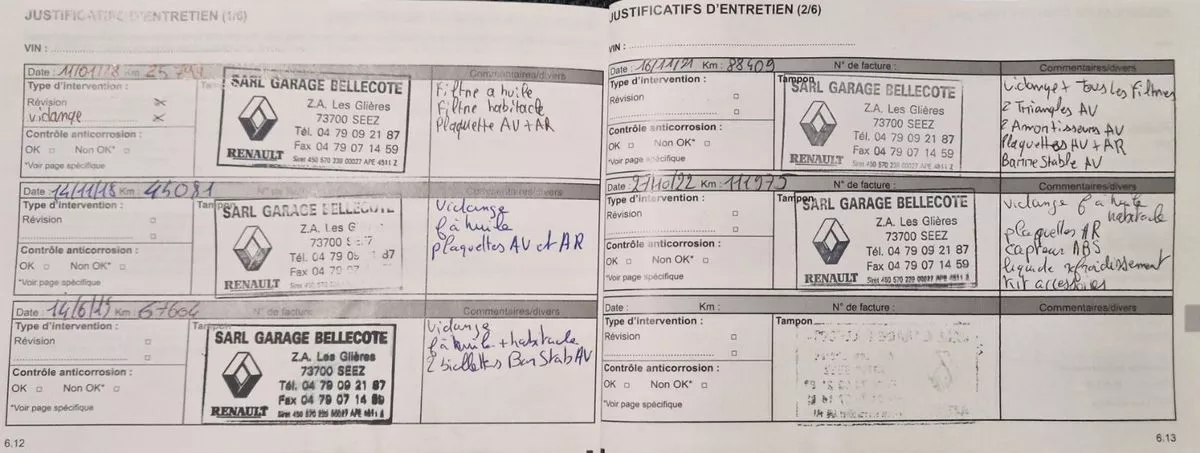 JUSTIFICATIFS D'ENTRETIEN (1/6)
VIN :
Date : 11/01/18 Km 25 799
Commentaires/divers
Type d'intervention :
Révision
vidange
Contrôle anticorrosion :
OK Non OK*
*Voir page spécifique
SARL GARAGE BELLECOTE
Z.A. Les Glières
73700 SEEZ
Tél. 04 79 09 21 87
Fax 04 79 07 14 59
RENAULT Siret 450 570 239 00027 APE 4511 Z
Filtre a huile
Filtre habitacle
Plaquette AV + AR
Date : 14/11/18 Km : 45081
N° de facture :
Commentaires/divers
Type d'intervention :
Révision
Contrôle anticorrosion :
OK Non OK*
*Voir page spécifique
Tampon
SARL GARAGE BELLECOTE
Z.A. Les G
73700
Tél. 04 79 09 87
Fax 04 79 07
RENAULT
Vidange
f à huile
plaquettes AV et AR
Date : 14/6/19 Km : 67604
N° de facture
Commentaires/divers
Type d'intervention :
Révision
Contrôle anticorrosion :
OK Non OK*
*Voir page spécifique
Tampon
SARL GARAGE BELLECOTE
Z.A. Les Glières
73700 SEEZ
Tél. 04 79 09 21 87
Fax 04 79 07 14 59
RENAULT Siret 450 570 239 00027 APE 4511 Z
Vidange
f à huile + habitacle
2 biellettes Barr Stab AV
6.12
JUSTIFICATIFS D'ENTRETIEN (2/6)
VIN :
Date : 16/11/21 Km : 88409
N° de facture :
Commentaires/divers
Type d'intervention :
Révision
Contrôle anticorrosion :
OK Non OK*
*Voir page spécifique
Tampon
SARL GARAGE BELLECOTE
Z.A. Les Glières
73700 SEEZ
Tél. 04 79 09 21 87
Fax 04 79 07 14 59
RENAULT Siret 450 570 239 00027 APE 4511 Z
Vidange + Tous Les Filtres
2 Triangles AV
2 Amortisseurs AV
Plaquettes AV + AR
Barre Stable AV
Date : 27/10/22 Km : 111975
N° de facture :
Commentaires/divers
Type d'intervention :
Révision
Contrôle anticorrosion :
OK Non OK*
*Voir page spécifique
Tampon
SARL GARAGE BELLECOTE
Z.A. Les Glières
73700 SEEZ
Tél. 04 79 09 21 87
Fax 04 79 07 14 59
RENAULT Siret 450 570 239 00027 APE 4511 Z
Vidange f à huile
habitacle
plaquettes AR
Capteur ABS
liquide refroidissement
Kit accessoires
Date : Km :
N° de facture :
Commentaires/divers
Type d'intervention :
Révision
Contrôle anticorrosion :
OK Non OK*
*Voir page spécifique
Tampon
6.13